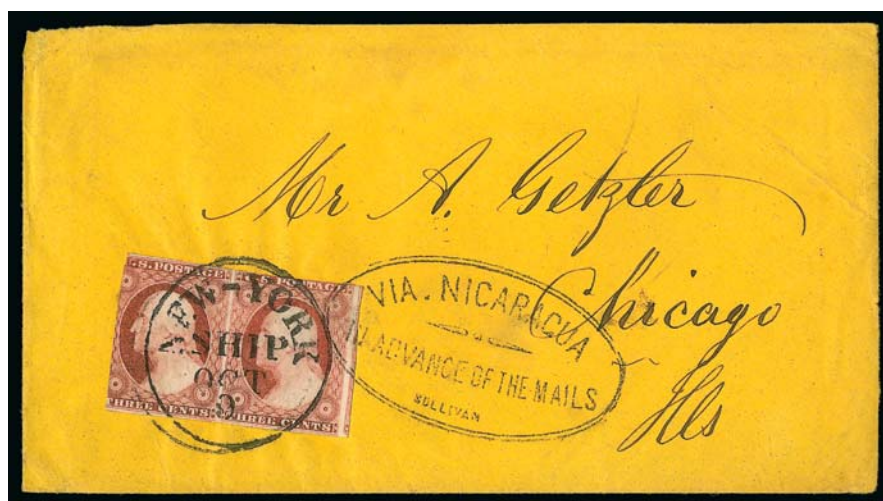 Mr A. Getzler
Chicago
Ills
U.S. POSTAGE U.S. POSTAGE
THREE CENTS THREE CENTS
NEW-YORK
SHIP
OCT
9
VIA. NICARAGUA
IN ADVANCE OF THE MAILS
SULLIVAN